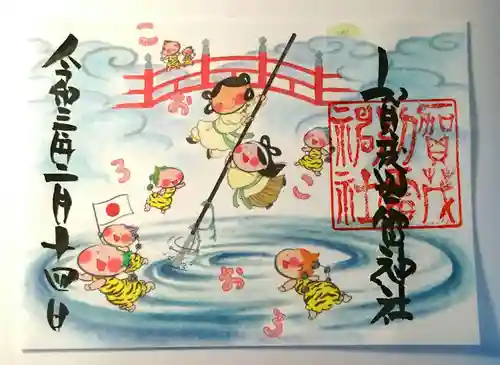 賀茂別雷神社
こ
お
ろ
こ
お
ろ
令和三年二月十四日